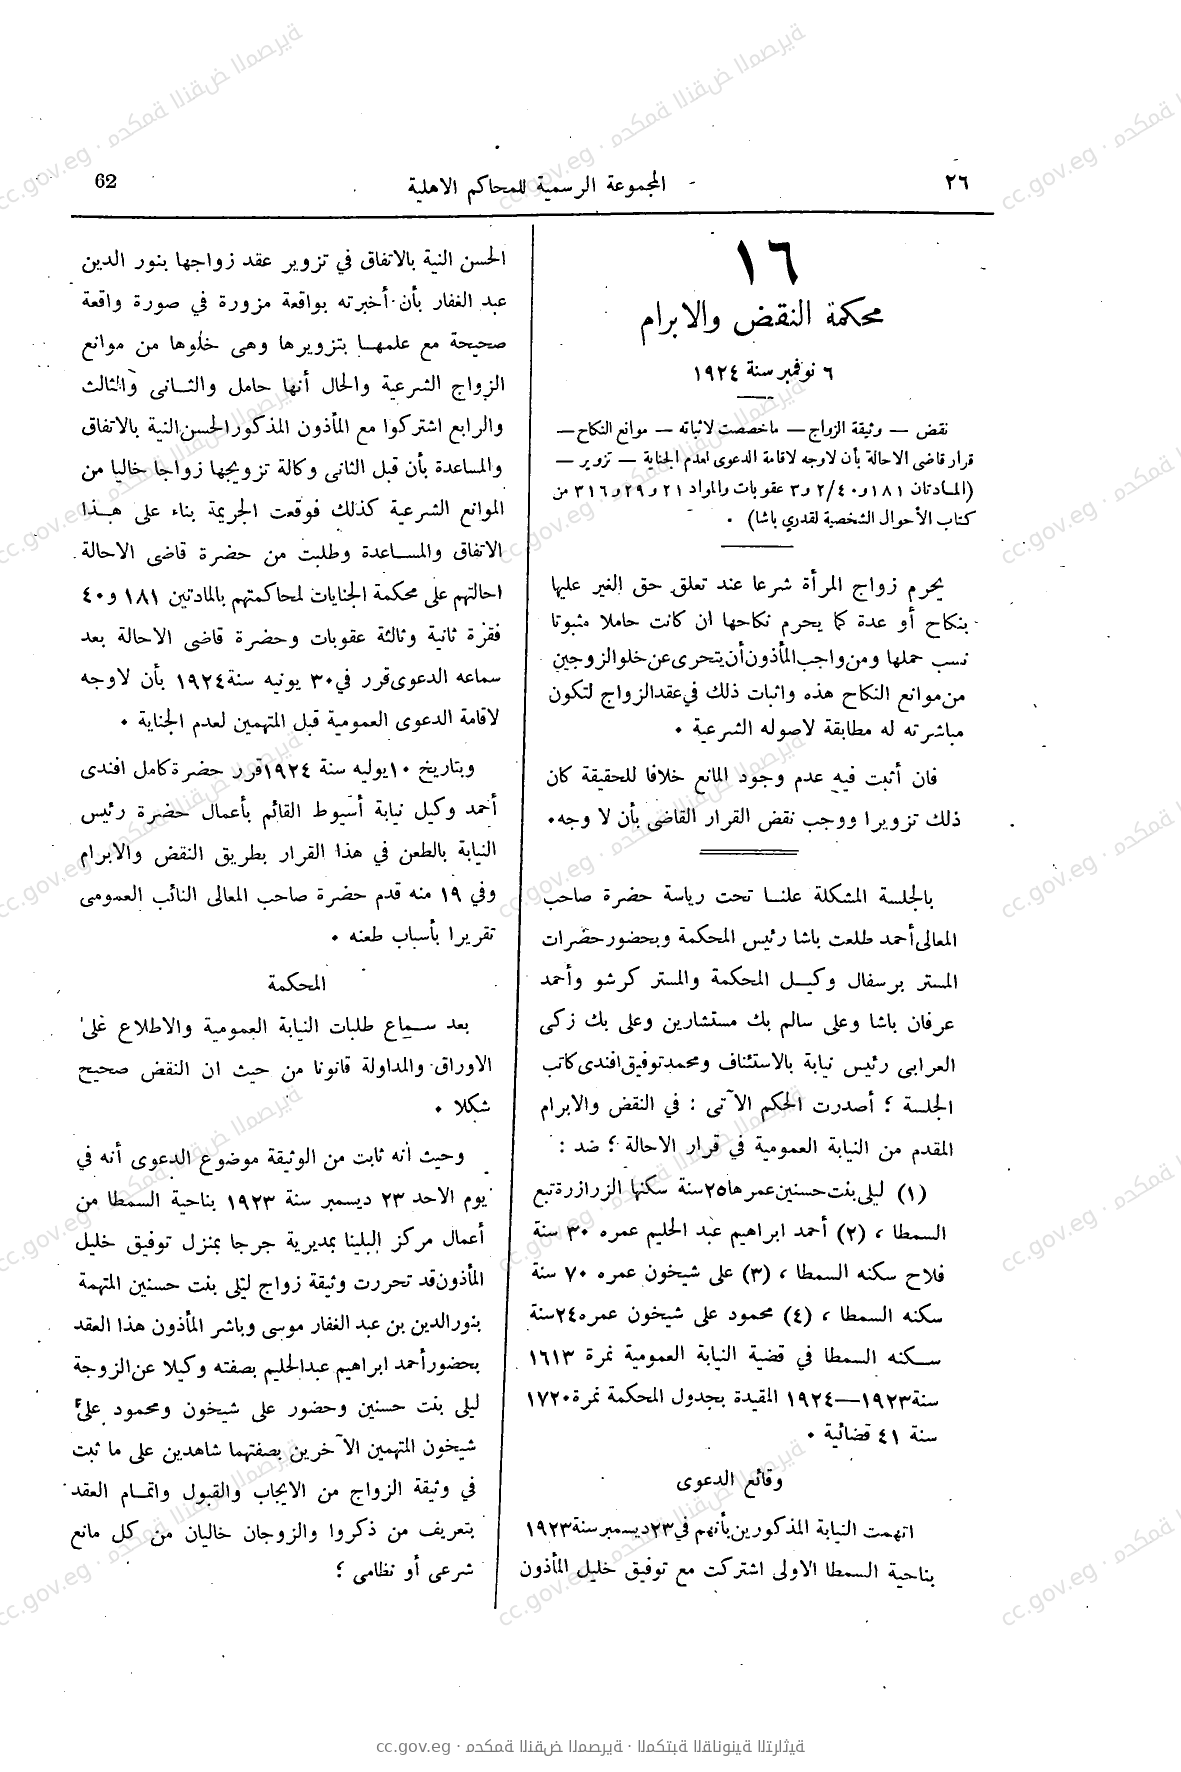 ٢٦
المجموعة الرسمية للمحاكم الاهلية
62
١٦
محكمة النقض والابرام
٦ نوفمبر سنة ١٩٢٤
نقض — وثيقة الزواج — ماخصصت لاثباته — موانع النكاح —
قرار قاضى الاحالة بأن لاوجه لاقامة الدعوى لعدم الجناية — تزوير —
(المادتان ١٨١ و٢/٤٠ و٣ عقوبات والمواد ٢١ و٢٩ و٣١٦ من
كتاب الأحوال الشخصية لقدري باشا) .
يحرم زواج المرأة شرعا عند تعلق حق الغير عليها
بنكاح أو عدة كما يحرم نكاحها ان كانت حاملا مثبوتا
نسب حملها ومن واجب المأذون أن يتحرى عن خلو الزوجين
من موانع النكاح هذه واثبات ذلك في عقد الزواج لتكون
مباشرته له مطابقة لاصوله الشرعية .
فان أثبت فيه عدم وجود المانع خلافا للحقيقة كان
ذلك تزويرا ووجب نقض القرار القاضى بأن لا وجه.
بالجلسة المشكلة علنا تحت رياسة حضرة صاحب
المعالى أحمد طلعت باشا رئيس المحكمة وبحضور حضرات
المستر برسفال وكيل المحكمة والمستر كرشو وأحمد
عرفان باشا وعلى سالم بك مستشارين وعلى بك زكى
العرابى رئيس نيابة بالاستئناف ومحمد توفيق افندى كاتب
الجلسة ؛ أصدرت الحكم الآتى : في النقض والابرام
المقدم من النيابة العمومية في قرار الاحالة ؛ ضد :
(١) ليلى بنت حسنين عمرها ٢٥ سنة سكنها الزرازرة تبع
السمطا ، (٢) أحمد ابراهيم عبد الحليم عمره ٣٠ سنة
فلاح سكنه السمطا ، (٣) على شيخون عمره ٧٠ سنة
سكنه السمطا ، (٤) محمود على شيخون عمره ٢٤ سنة
سكنه السمطا في قضية النيابة العمومية نمرة ١٦١٣
سنة ١٩٢٣—١٩٢٤ المقيدة بجدول المحكمة نمرة ١٧٢٠
سنة ٤١ قضائية .
وقائع الدعوى
اتهمت النيابة المذكورين بأنهم في ٢٣ ديسمبر سنة ١٩٢٣
بناحية السمطا الاولى اشتركت مع توفيق خليل المأذون
الحسن النية بالاتفاق في تزوير عقد زواجها بنور الدين
عبد الغفار بأن أخبرته بواقعة مزورة في صورة واقعة
صحيحة مع علمها بتزويرها وهى خلوها من موانع
الزواج الشرعية والحال أنها حامل والثانى والثالث
والرابع اشتركوا مع المأذون المذكور الحسن النية بالاتفاق
والمساعدة بأن قبل الثانى وكالة تزويجها زواجا خاليا من
الموانع الشرعية كذلك فوقعت الجريمة بناء على هذا
الاتفاق والمساعدة وطلبت من حضرة قاضى الاحالة
احالتهم على محكمة الجنايات لمحاكمتهم بالمادتين ١٨١ و٤٠
فقرة ثانية وثالثة عقوبات وحضرة قاضى الاحالة بعد
سماعه الدعوى قرر في ٣٠ يونيه سنة ١٩٢٤ بأن لاوجه
لاقامة الدعوى العمومية قبل المتهمين لعدم الجناية .
وبتاريخ ١٠ يوليه سنة ١٩٢٤ قرر حضرة كامل افندى
أحمد وكيل نيابة أسيوط القائم بأعمال حضرة رئيس
النيابة بالطعن في هذا القرار بطريق النقض والابرام
وفي ١٩ منه قدم حضرة صاحب المعالى النائب العمومى
تقريرا بأسباب طعنه .
المحكمة
بعد سماع طلبات النيابة العمومية والاطلاع على
الاوراق والمداولة قانونا من حيث ان النقض صحيح
شكلا .
وحيث انه ثابت من الوثيقة موضوع الدعوى أنه في
يوم الاحد ٢٣ ديسمبر سنة ١٩٢٣ بناحية السمطا من
أعمال مركز البلينا بمديرية جرجا بمنزل توفيق خليل
المأذون قد تحررت وثيقة زواج ليلى بنت حسنين المتهمة
بنور الدين بن عبد الغفار موسى وباشر المأذون هذا العقد
بحضور أحمد ابراهيم عبد الحليم بصفته وكيلا عن الزوجة
ليلى بنت حسنين وحضور على شيخون ومحمود على
شيخون المتهمين الآخرين بصفتهما شاهدين على ما ثبت
في وثيقة الزواج من الايجاب والقبول واتمام العقد
بتعريف من ذكروا والزوجان خاليان من كل مانع
شرعى أو نظامى ؛
cc.gov.eg · محكمة النقض المصرية · المكتبة القانونية التراثية